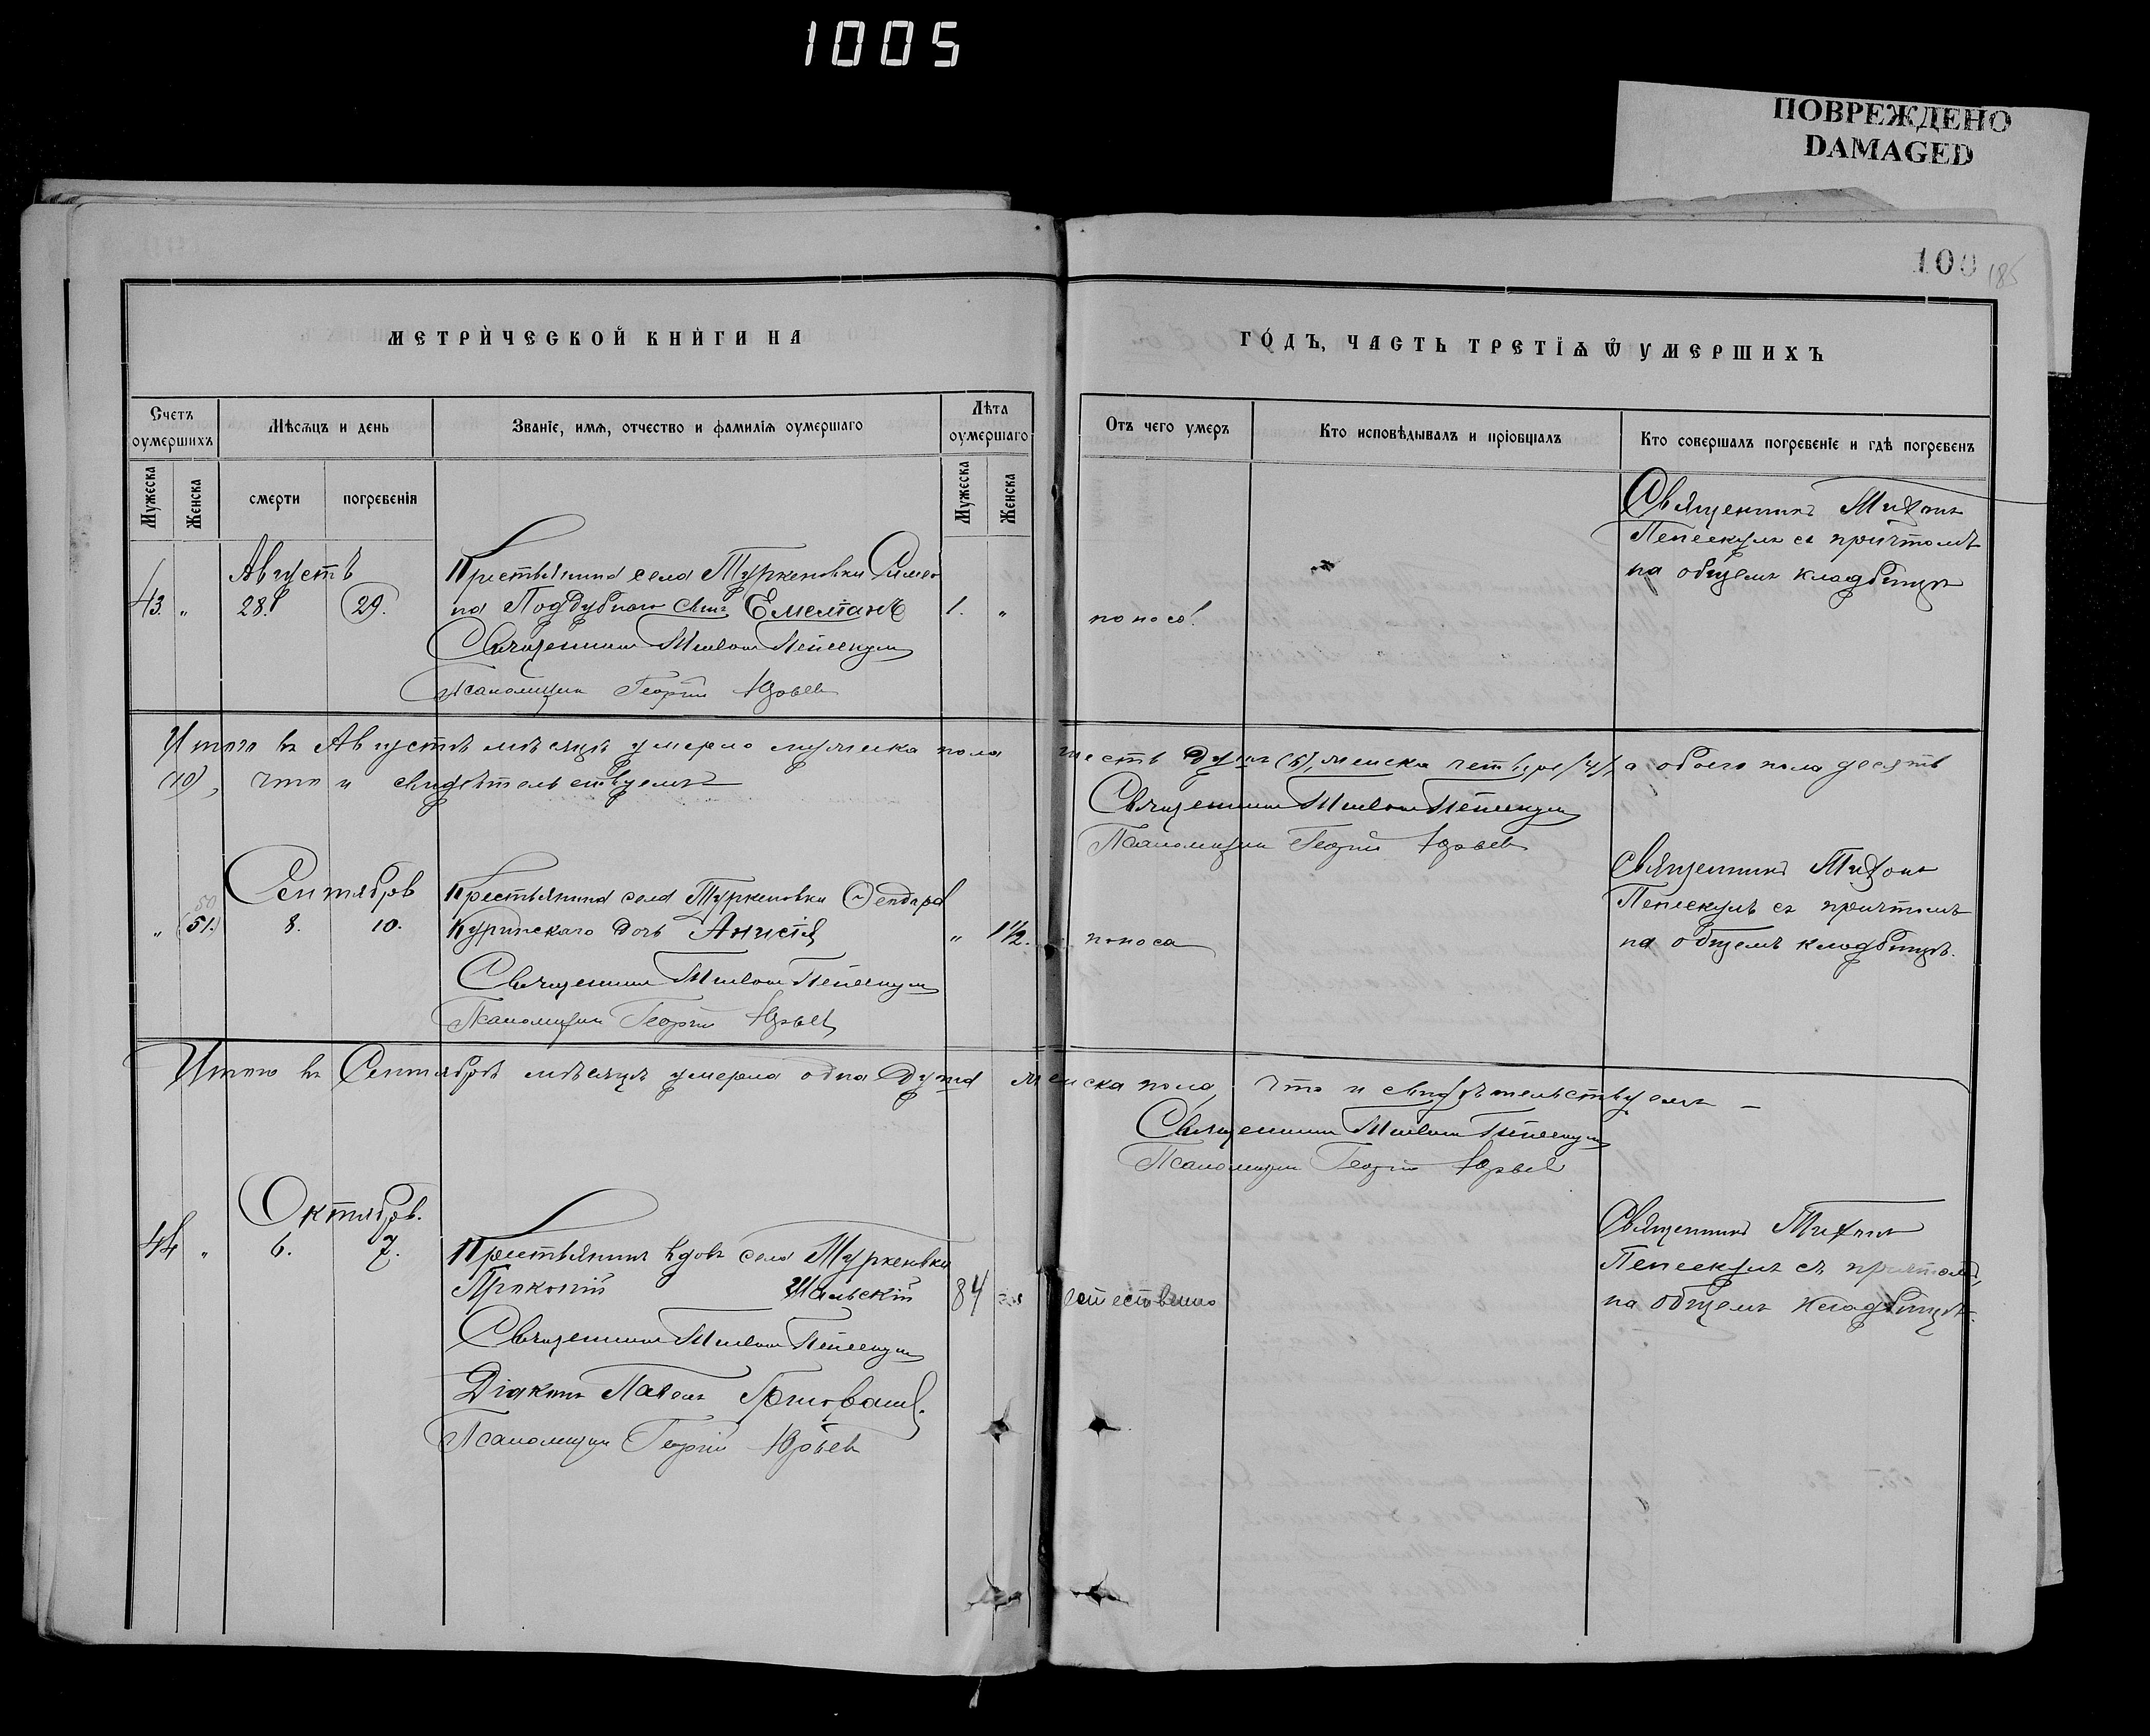 1005
ПОВРЕЖДЕНО
DAMAGED
100
185
МЕТРИ́ЧЕСКОЙ КНИ́ГИ НА
ГО́ДЪ, ЧАСТЬ ТРЕТІѦ Ѿ УМЕРШИХЪ
Счетъ оумершихъ
Мѣсѧцъ и день
Званіе, имѧ, отчество и фамиліѧ оумершаго
Лѣта оумершаго
Отъ чего умеръ
Кто исповѣдывалъ и пріобщалъ
Кто совершалъ погребеніе и гдѣ погребенъ
Мужеска
Женска
смерти
погребенія
Мужеска
Женска
Августъ
43. " 28. 29.
Крестьянина села Туркеновки Симео
на Поддубнаго сынъ Емеліанъ
1. "
поноса.
Священникъ Тихонъ
Пепескулъ съ причтомъ
на общемъ кладбищѣ
Священникъ Тихонъ Пепескулъ
Псаломщикъ Георгій Юрьев
Итого въ Августѣ мѣсяцѣ умерло мужеска пола шесть душъ (6), женска четыре /4/, а обоего пола десять
(10), что и свидѣтельствуемъ
Священникъ Тихонъ Пепескулъ
Псаломщикъ Георгій Юрьев
Сентябрь
50
" (51.) 8. 10.
Крестьянина села Туркеновки Ѳеодора
Куринскаго дочь Анисія
" 1½.
поноса
Священникъ Тихонъ
Пепескулъ съ причтомъ
на общемъ кладбищѣ.
Священникъ Тихонъ Пепескулъ
Псаломщикъ Георгій Юрьев
Итого въ Сентябрѣ мѣсяцѣ умерла одна душа женска пола, что и свидѣтельствуемъ –
Священникъ Тихонъ Пепескулъ
Псаломщикъ Георгій Юрьев
Октябрь.
44 " 6. 7.
Крестьянинъ вдовъ села Туркеновки
Прокопій Шальскій
84
естественно
Священникъ Тихонъ
Пепескулъ съ причтомъ
на общемъ кладбищѣ.
Священникъ Тихонъ Пепескулъ
Діаконъ Павелъ
Псаломщикъ Георгій Юрьев